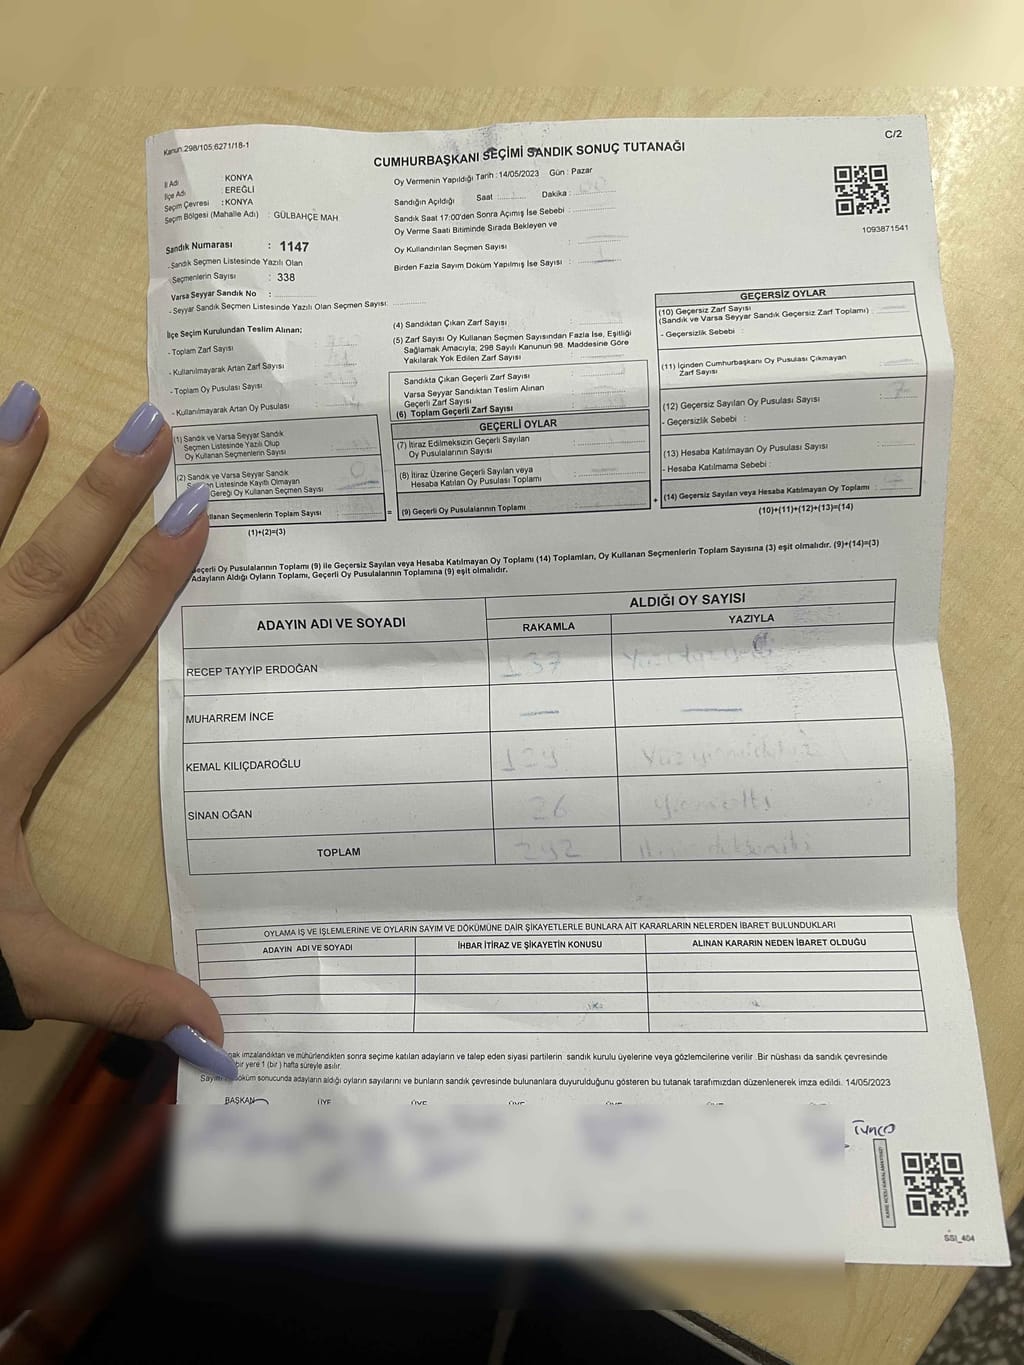 Kanun.298/105,6271/18-1
C/2
CUMHURBAŞKANI SEÇİMİ SANDIK SONUÇ TUTANAĞI
İl Adı : KONYA
İlçe Adı : EREĞLİ
Seçim Çevresi : KONYA
Seçim Bölgesi (Mahalle Adı) : GÜLBAHÇE MAH
Sandık Numarası : 1147
- Sandık Seçmen Listesinde Yazılı Olan
Seçmenlerin Sayısı : 338
Varsa Seyyar Sandık No :
- Seyyar Sandık Seçmen Listesinde Yazılı Olan Seçmen Sayısı:
Oy Vermenin Yapıldığı Tarih : 14/05/2023 Gün : Pazar
Sandığın Açıldığı Saat : Dakika : 00
Sandık Saat 17:00'den Sonra Açımış İse Sebebi :
Oy Verme Saati Bitiminde Sırada Bekleyen ve
Oy Kullandırılan Seçmen Sayısı :
Birden Fazla Sayım Döküm Yapılmış İse Sayısı :
1093871541
İlçe Seçim Kurulundan Teslim Alınan;
- Toplam Zarf Sayısı :
- Kullanılmayarak Artan Zarf Sayısı :
- Toplam Oy Pusulası Sayısı :
- Kullanılmayarak Artan Oy Pusulası :
(1) Sandık ve Varsa Seyyar Sandık
Seçmen Listesinde Yazılı Olup
Oy Kullanan Seçmenlerin Sayısı :
(2) Sandık ve Varsa Seyyar Sandık
Listesinde Kayıtlı Olmayan
Gereği Oy Kullanan Seçmen Sayısı :
llanan Seçmenlerin Toplam Sayısı : =
(1)+(2)=(3)
(4) Sandıktan Çıkan Zarf Sayısı :
(5) Zarf Sayısı Oy Kullanan Seçmen Sayısından Fazla İse, Eşitliği
Sağlamak Amacıyla, 298 Sayılı Kanunun 98. Maddesine Göre
Yakılarak Yok Edilen Zarf Sayısı :
Sandıkta Çıkan Geçerli Zarf Sayısı :
Varsa Seyyar Sandıktan Teslim Alınan
Geçerli Zarf Sayısı :
(6) Toplam Geçerli Zarf Sayısı :
GEÇERLİ OYLAR
(7) İtiraz Edilmeksizin Geçerli Sayılan
Oy Pusulalarının Sayısı :
(8) İtiraz Üzerine Geçerli Sayılan veya
Hesaba Katılan Oy Pusulası Toplamı :
(9) Geçerli Oy Pusulalarının Toplamı : +
GEÇERSİZ OYLAR
(10) Geçersiz Zarf Sayısı
(Sandık ve Varsa Seyyar Sandık Geçersiz Zarf Toplamı) :
- Geçersizlik Sebebi :
(11) İçinden Cumhurbaşkanı Oy Pusulası Çıkmayan
Zarf Sayısı :
(12) Geçersiz Sayılan Oy Pusulası Sayısı : 7
- Geçersizlik Sebebi :
(13) Hesaba Katılmayan Oy Pusulası Sayısı :
- Hesaba Katılmama Sebebi :
(14) Geçersiz Sayılan veya Hesaba Katılmayan Oy Toplamı :
(10)+(11)+(12)+(13)=(14)
eçerli Oy Pusulalarının Toplamı (9) ile Geçersiz Sayılan veya Hesaba Katılmayan Oy Toplamı (14) Toplamları, Oy Kullanan Seçmenlerin Toplam Sayısına (3) eşit olmalıdır. (9)+(14)=(3)
Adayların Aldığı Oyların Toplamı, Geçerli Oy Pusulalarının Toplamına (9) eşit olmalıdır.
ADAYIN ADI VE SOYADI
ALDIĞI OY SAYISI
RAKAMLA YAZIYLA
RECEP TAYYİP ERDOĞAN 137
MUHARREM İNCE — —
KEMAL KILIÇDAROĞLU 129
SİNAN OĞAN 26 Yirmialtı
TOPLAM 292
OYLAMA İŞ VE İŞLEMLERİNE VE OYLARIN SAYIM VE DÖKÜMÜNE DAİR ŞİKAYETLERLE BUNLARA AİT KARARLARIN NELERDEN İBARET BULUNDUKLARI
ADAYIN ADI VE SOYADI İHBAR İTİRAZ VE ŞİKAYETİN KONUSU ALINAN KARARIN NEDEN İBARET OLDUĞU
nak imzalandıktan ve mühürlendikten sonra seçime katılan adayların ve talep eden siyasi partilerin sandık kurulu üyelerine veya gözlemcilerine verilir. Bir nüshası da sandık çevresinde
bir yere 1 (bir ) hafta süreyle asılır.
Sayım döküm sonucunda adayların aldığı oyların sayılarını ve bunların sandık çevresinde bulunanlara duyurulduğunu gösteren bu tutanak tarafımızdan düzenlenerek imza edildi. 14/05/2023
BAŞKAN ÜYE ÜYE
SSI_404